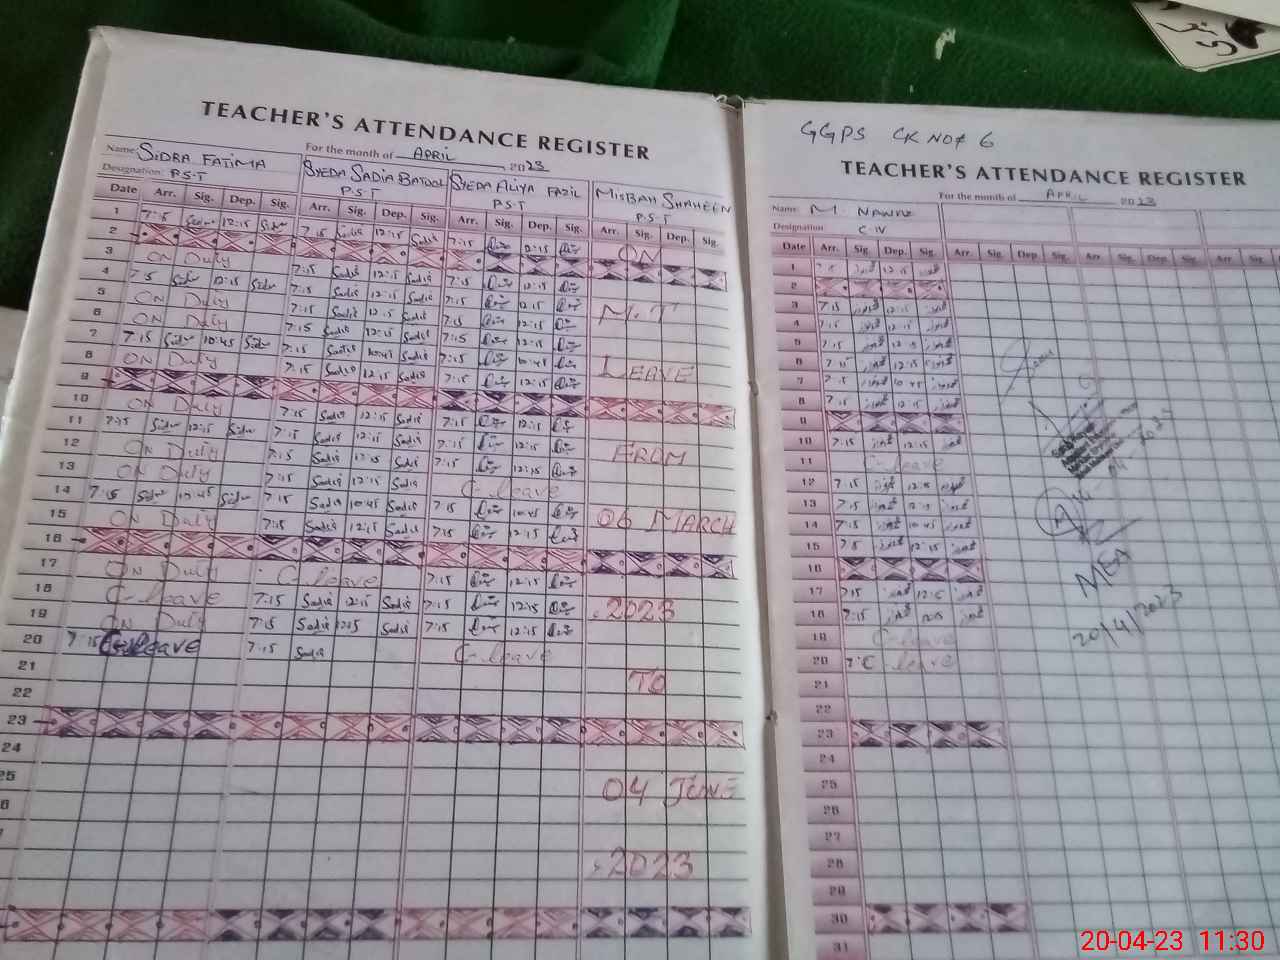 TEACHER'S ATTENDANCE REGISTER
For the month of APRIL 2023
Name: SIDRA FATIMA SYEDA SADIA BATOOL SYEDA ALIYA FAZIL MISBAH SHAHEEN
Designation: P.S.T P.S.T P.S.T P.S.T
Date Arr. Sig. Dep. Sig. Arr. Sig. Dep. Sig. Arr. Sig. Dep. Sig. Arr. Sig. Dep. Sig.
1 7:15 Sidra 12:15 Sidra 7:15 Sadia 12:15 Sadia 7:15 12:15 ON
2
3 ON Duty 7:15 Sadia 12:15 Sadia 7:15 12:15
4 7:15 Sidra 12:15 Sidra 7:15 Sadia 12:15 Sadia 7:15 12:15 M.T
5 ON Duty 7:15 Sadia 12:15 Sadia 7:15 12:15
6 ON Duty 7:15 Sadia 12:15 Sadia 7:15 12:15
7 7:15 Sidra 10:45 Sidra 7:15 Sadia 10:45 Sadia 7:15 10:45 LEAVE
8 ON Duty 7:15 Sadia 12:15 Sadia 7:15 12:15
9
10 ON Duty 7:15 Sadia 12:15 Sadia 7:15 12:15
11 7:15 Sidra 12:15 Sidra 7:15 Sadia 12:15 Sadia 7:15 12:15 FROM
12 ON Duty 7:15 Sadia 12:15 Sadia 7:15 12:15
13 ON Duty 7:15 Sadia 12:15 Sadia C-leave
14 7:15 Sidra 10:45 Sidra 7:15 Sadia 10:45 Sadia 7:15 10:45 06 MARCH
15 ON Duty 7:15 Sadia 12:15 Sadia 7:15 12:15
16
17 ON Duty C-leave 7:15 12:15
18 C-leave 7:15 Sadia 12:15 Sadia 7:15 12:15 2023
19 ON Duty 7:15 Sadia 1205 Sadia 7:15 12:15
20 7:15 C-leave 7:15 Sadia C-leave
21 TO
22
23
24
25 04 JUNE
2023
GGPS CK NO# 6
TEACHER'S ATTENDANCE REGISTER
For the month of APRIL 2023
Name: M. NAWAZ
Designation: C IV
Date Arr. Sig. Dep. Sig. Arr. Sig. Dep. Sig. Arr Sig. Dep. Sig. Arr Sig.
1 7:15 12:15
2
3 7:15 12:15
4 7:15 12:15
5 7:15 12:15
6 7:15 12:15
7 7:15 10:45
8 7:15 12:15
9
10 7:15 12:15
11 C-leave
12 7:15 12:15
13 7:15 12:15
14 7:15 10:45
15 7:15 12:15
16
17 7:15 12:15
18 7:15 1205
19 C-leave
20 C-leave
21
22
23
24
25
26
27
28
29
30
31
MEA
20/4/2023
20-04-23 11:30